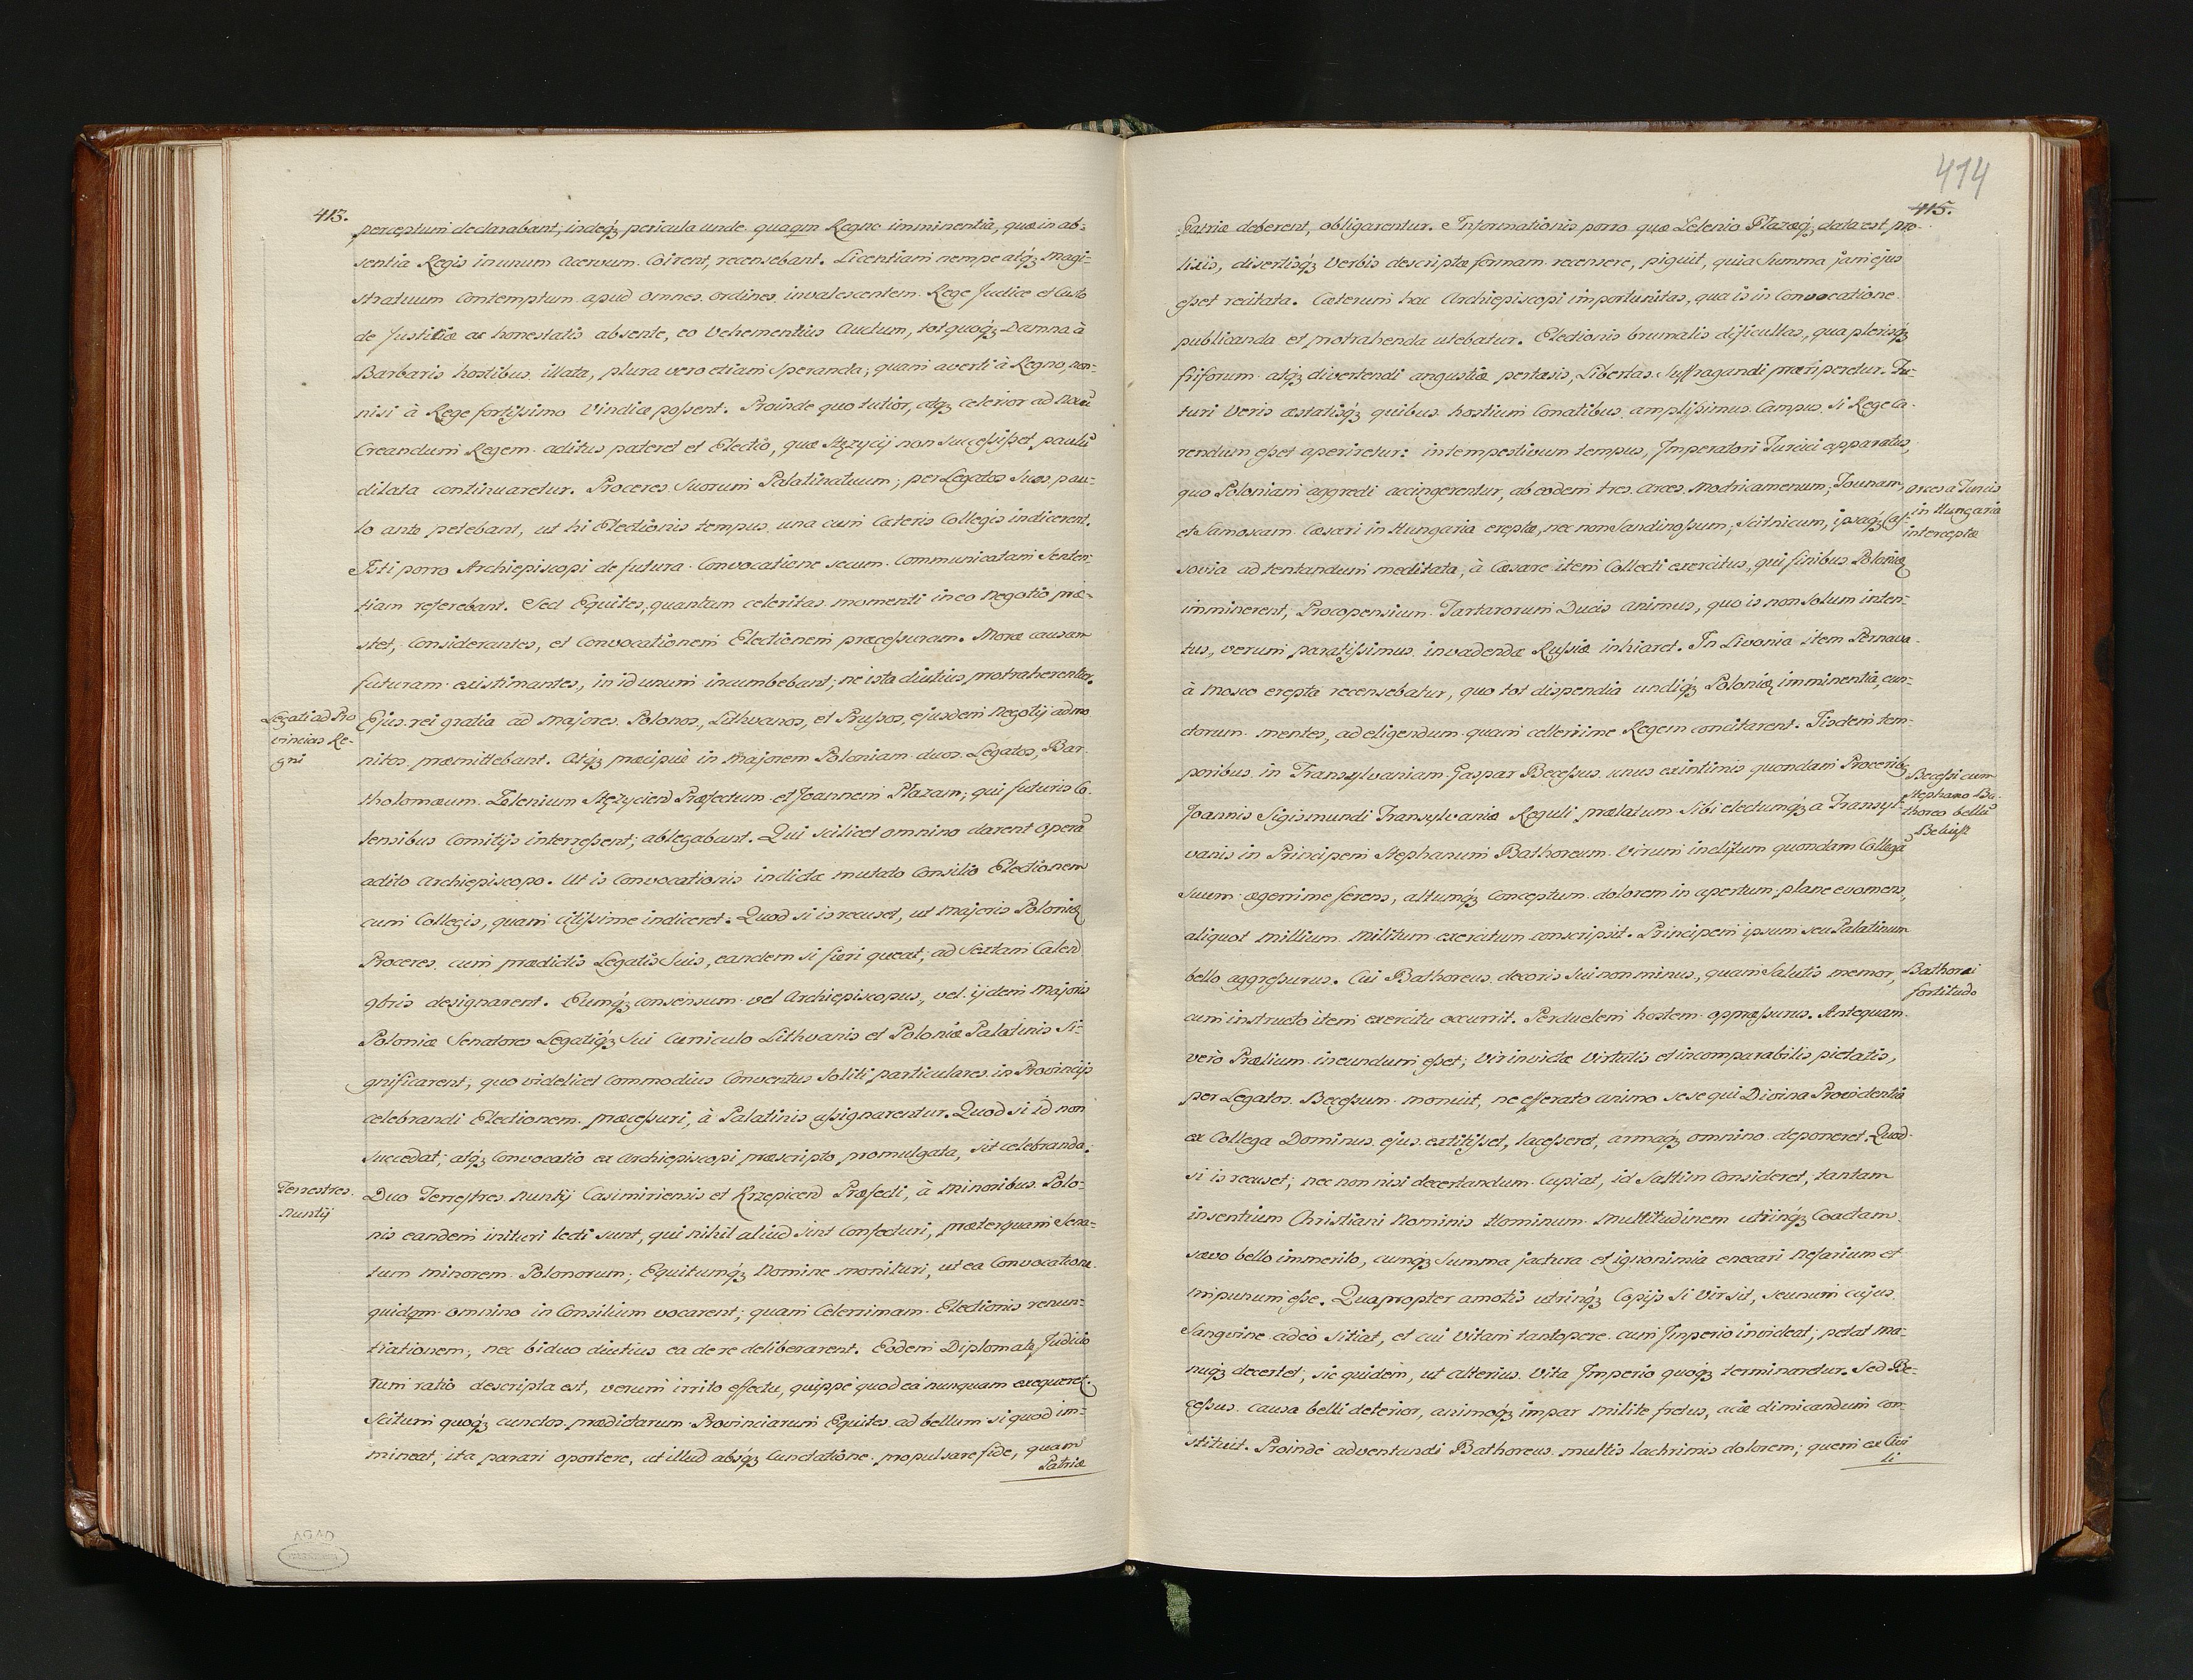 413.
perceptum declarabant, indeq́ȝ pericula unde quaqm Regno imminentia, quæ in ab-
sentia Regis in unum Acervum Coirent, recensebant. Licentiam nempe atq́ȝ Magi-
stratuum Contemptum apud omnes ordines invalescentem Rege Judice et Custo
de Justitiæ ac honestatis absente, eo Vehementius Auctum, tot quoq́ȝ Damna à
Barbaris hostibus illata, plura vero etiam Speranda, quam averti à Regno, non-
nisi à Rege fortissimo Vindice possent. Proinde quo tutior, atq́ȝ celerior ad Novũ
Creandum Regem aditus pateret et Electio, quæ Stęzycij non Successisset, paulũ
dilata continuaretur. Proceres Suorum Palatinatuum; per Legatos Suos pau-
lo ante petebant, ut hi Electionis tempus una cum Cæteris Collegis indicerent.
Isti porro Archiepiscopi de futura Convocatione secum Communicatam Senten-
tiam referebant. Sed Equites, quantum celeritas momenti in eo negotio præ-
stet, Considerantes, et Convocationem Electionem præcessuram. Moræ causam
futuram existimantes, in id unum incumbebant; ne ista diutius protraherentur.
Legati ad Pro
vincias Re-
gni
Ejus rei gratia ad Majores Polonos, Lithvanos, et Prussos, ejusdem Negotij admo
nitos præmittebant. Atq́ȝ præcipuè in Majorem Poloniam duos Legatos, Bar-
tholomæum Zelenium Stęzycien Præfectum et Joannem Płazam; qui futuris Co-
tensibus Comitijs interressent; ablegabant. Qui scilicet omnino darent operã
adito Archiepiscopo. Ut is Convocationis indictæ mutato Consilio Electionem
cum Collegis, quam citissime indiceret. Quod si is recuset, ut Majoris Poloniæ
Proceres cum prædictis Legatis Suis, eandem si fieri queat; ad Sextam Calend
9bris designarent. Eumq́ȝ consensum vel Archiepiscopus, vel ijdem Majoris
Poloniæ Senatores Legatiq́ȝ Sui Curriculo Lithvanis et Poloniæ Palatinis Si-
gnificarent, quo videlicet Commodius Conventus Soliti particulares in Provincijs
celebrandi Electionem præcessuri, à Palatinis assignarentur. Quod si id non
Succedat; atq́ȝ Convocatio ex Archiepiscopi præscripto promulgata, sit celebranda.
Terrestres
Nuntij
Duo Terrestres Nuntij Casimiriensis et Krzepicen Præfecti, à Minoribus Polo-
nis eandem inituri lecti sunt, qui nihil aliud sint Confecturi, præterquam Sena-
tum Minorem Polonorum; Equitumq́ȝ Nomine monituri, ut ea Convocatione
quidqm omnino in Consilium vocarent; quam Celerrimam Electionis renun-
tiationem, nec biduo diutius ea de re deliberarent. Eodem Diplomate Judicio
rum ratio descripta est, verum irrito effectu, quippe quod ea nunquam exequeret.
Scitum quoq́ȝ cunctos prædictarum Provinciarum Equites ad bellum si quod im-
mineat, ita parari oportere, ut illud absq́ȝ Cunctatione propulsare fide, quam
Patriæ
414
415.
Patriæ deberent, obligarentur. Informationis porro quæ Zelenio Płazæq́ȝ data est pro-
lixis, disertisq́ȝ Verbis descriptæ formam recensere, piguit, quia Summa jam ejus
esset recitata. Cæterum hac Archiepiscopi importunitas, qua is in Convocatione
publicanda et protrahenda utebatur. Electionis brumalis dificultas, qua plerisq́ȝ
frisorum atq́ȝ divertendi angustiæ pertæsis, Libertas Suffragandi præriperetur. Fu-
turi Veris æstatisq́ȝ quibus hostium Conatibus amplissimus Campus, si Rege ca-
rendum esset aperiretur: intempestivum tempus, Imperatori Turcici apparatus,
quo Poloniam aggredi accingerentur, ab eodem tres Arces Modricamenum, Jounam,
arces a Turcis
in Hungaria
interceptæ
et Samoscam Cæsari in Hungaria ereptæ, nec non Sandinossum, Scitnicum, ipsaq́ȝ Cas-
sovia ad tentandum meditata, à Cæsare item Collecti exercitus, qui finibus Poloniæ
imminerent, Procopensium Tartarorum Ducis Animus, quo is non Solum inten-
tus, verum paratissimus invadendæ Russiæ inhiaret. In Livonia item Pernava
à Mosco erepta recensebatur, quo tot dispendia undiq́ȝ Poloniæ imminentia, cun-
ctorum mentes, ad eligendum quam cellerrime Regem concitarent. Iisdem tem-
poribus in Transylvaniam Gaspar Becessus unus ex intimis quondam Procerib9
Becessi cum
Stephano Ba-
thoreo bellũ
Joannis Sigismundi Transylvaniæ Reguli prælatum Sibi electumq́ȝ a Transyl-
vanis in Principem Stephanum Bathoreum Virum inclitum quondam Collegã
Suum ægerrime ferens, altumq́ȝ Conceptum dolorem in apertum plane evomens,
aliquot Millium Militum exercitum conscripsit. Principem ipsum seu Palatinum
bello aggressurus. Cui Bathoreus decoris Sui non minus, quam Salutis memor,
Bathorei
fortitudo
cum instructo item exercitu occurrit. Perduelem hostem oppressurus. Antequam
verò Prælium ineundum esset; Vir invictæ Virtutis et incomparabilis pietatis,
per Legatos Becessum monuit, ne efferato animo sese qui Divina Providentia
ex Collega Dominus ejus extitisset, lacesseret, armaq́ȝ omnino deponeret. Quod
si is recuset; nec non nisi decertandum Cupiat, id Saltim Consideret, tantam
insentium Christiani Nominis Hominum Multitudinem utrinq́ȝ Coactam
sævo bello immerito, cumq́ȝ Summa jactura et ignonimia enecari Nefarium et
impunum esse. Quapropter amotis utrinq́ȝ Copijs Si Vir sit, seunum cujus
Sangvine adeò Sitiat, et cui Vitam tantopere cum Imperio invideat; petat ma-
nuq́ȝ decertet, sic quidem, ut alterius Vita Imperio quoq́ȝ terminaretur. Sed Be-
cessus causa belli deterior, animoq́ȝ impar Milite fretus, acie dimicandum con-
stituit. Proinde adventandi Bathoreus multis lachrimis dolorem; quem ex Civi
li
AGAD